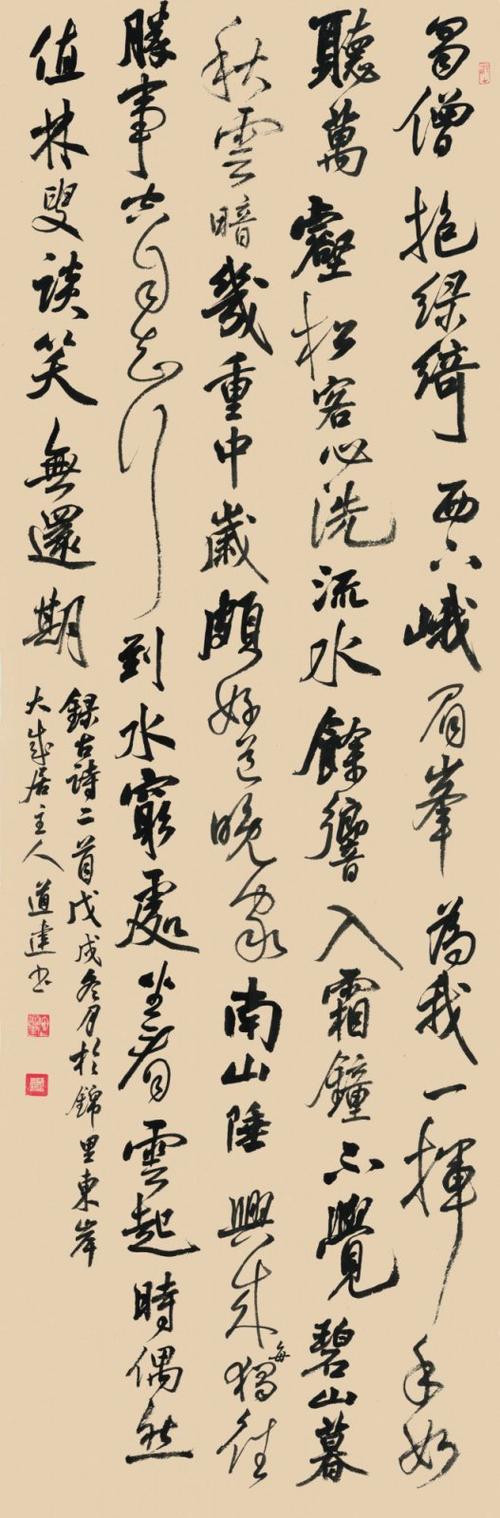 蜀僧抱緑綺西下峨眉峯為我一揮手如
聽萬壑松客心洗流水餘響入霜鐘不覺碧山暮
秋雲暗幾重中歲頗好道晚家南山陲興来每獨往
勝事空自知行到水窮處坐看雲起時偶然
值林叟談笑無還期
録古詩二首戊戌冬月於錦里東岸
大成居主人道建书